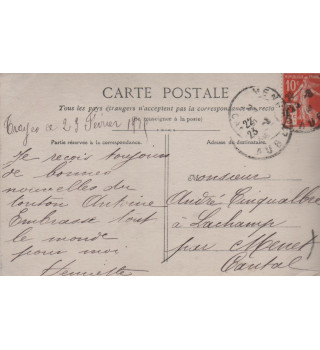 CARTE POSTALE
Tous les pays étrangers n'acceptent pas la correspondance au recto
(se renseigner à la poste)
Troyes le 23 Février
Partie réservée à la correspondance.
Je reçois toujours
de bonnes
nouvelles du
tonton Antoine
Embrasse tout
le monde
pour moi
Henriette
Adresse du destinataire.
Monsieur
André Cinqualbre
à Lachamp
par Menet
Cantal
AUBE
10